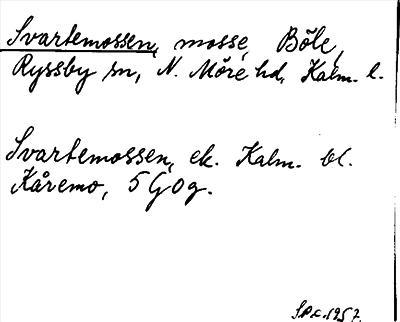 Svartemossen, mosse, Böle,
Ryssby sn, N. Möre hd, Kalm. l.
Svartemossen, ek. Kalm. bl.
Kåremo, 5 G 0 g.
1957